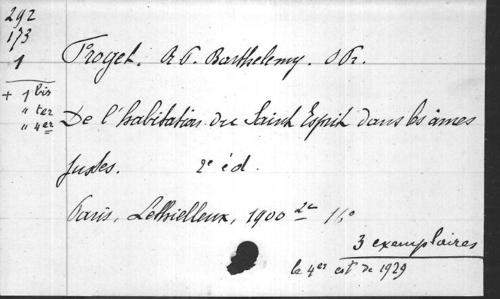 292
173
1
+ 1 bis
" ter
" 4er
Froget. R. P. Barthelemy. O. Pr.
De l'habitation du Saint Esprit dans les âmes
justes. 2e éd.
Paris, Lethielleux, 1900 2e 16°
3 exemplaires
le 4er est de 1929